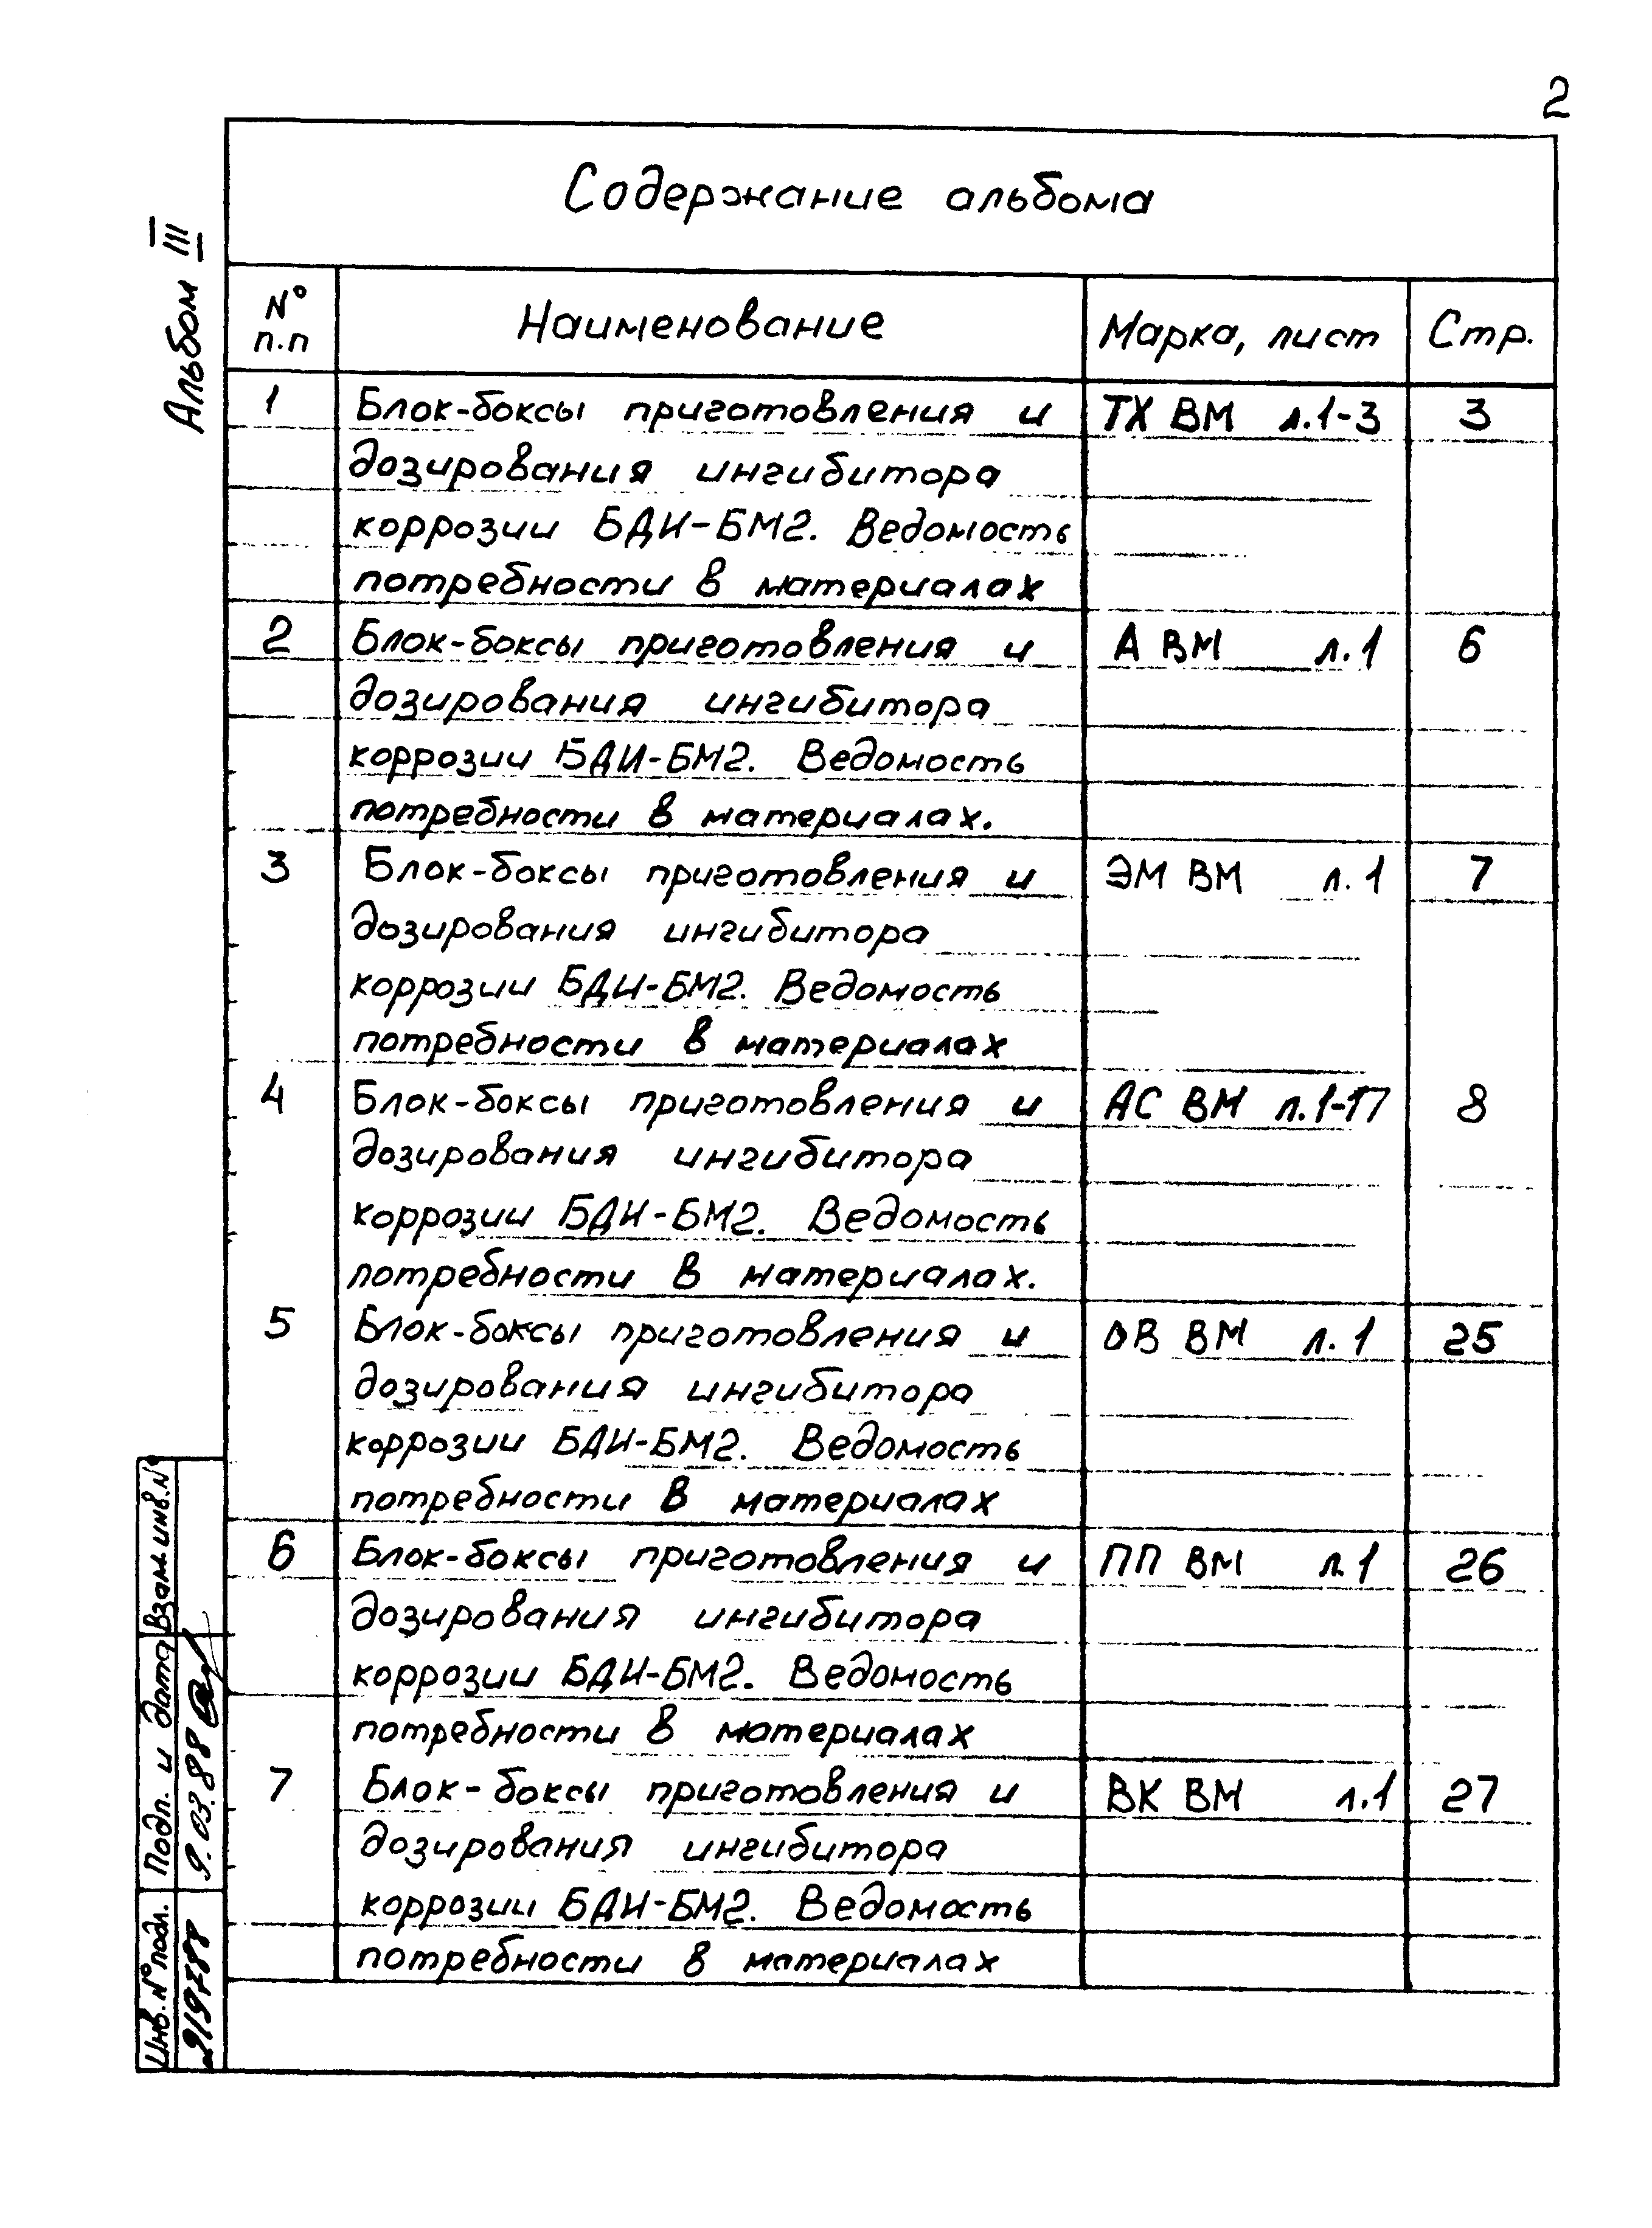 2
Содержание альбома
Альбом III
№ п.п Наименование Марка, лист Стр.
1 Блок-боксы приготовления и ТХ ВМ л.1-3 3
дозирования ингибитора
коррозии БДИ-БМ2. Ведомость
потребности в материалах
2 Блок-боксы приготовления и А ВМ л.1 6
дозирования ингибитора
коррозии БДИ-БМ2. Ведомость
потребности в материалах.
3 Блок-боксы приготовления и ЭМ ВМ л.1 7
дозирования ингибитора
коррозии БДИ-БМ2. Ведомость
потребности в материалах
4 Блок-боксы приготовления и АС ВМ л.1-17 8
дозирования ингибитора
коррозии БДИ-БМ2. Ведомость
потребности в материалах.
5 Блок-боксы приготовления и ОВ ВМ л.1 25
дозирования ингибитора
коррозии БДИ-БМ2. Ведомость
потребности в материалах
6 Блок-боксы приготовления и ПП ВМ л.1 26
дозирования ингибитора
коррозии БДИ-БМ2. Ведомость
потребности в материалах
7 Блок-боксы приготовления и ВК ВМ л.1 27
дозирования ингибитора
коррозии БДИ-БМ2. Ведомость
потребности в материалах
Взам.инв.№
Подп. и дата
9.03.88
Инв.№подл.